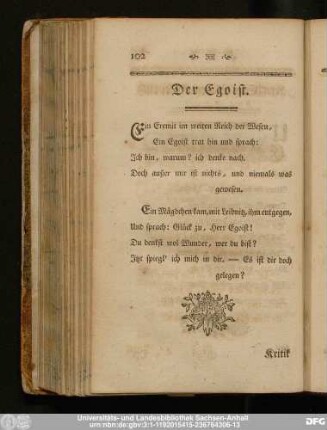 102
Der Egoist.
Ein Eremit im weiten Reich der Wesen,
Ein Egoist trat hin und sprach:
Ich bin, warum? ich denke nach.
Doch außer mir ist nichts, und niemals was
gewesen.
Ein Mägdchen kam, mit Leibnitz, ihm entgegen,
Und sprach: Glück zu, Herr Egoist!
Du denkst wol Wunder, wer du bist?
Itzt spiegl' ich mich in dir. — Es ist dir doch
gelegen?
Kritik
Universitäts- und Landesbibliothek Sachsen-Anhalt
urn:nbn:de:gbv:3:1-1192015415-236764306-13
DFG